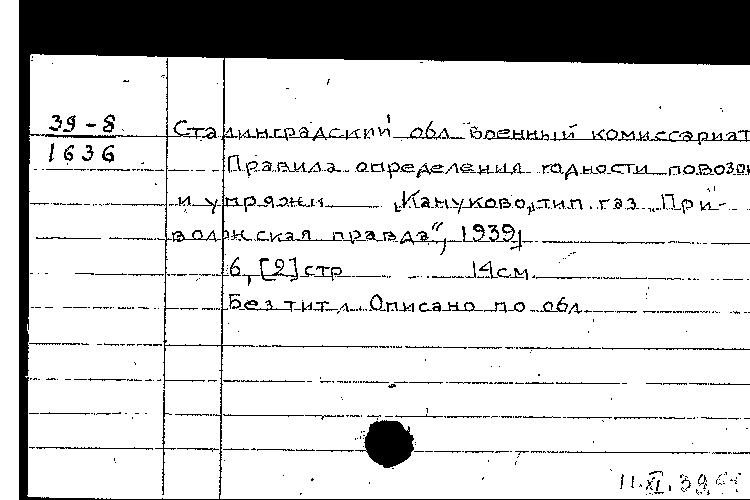 39-8
1636
Сталинградский обл. военный комиссариат
Правила определения годности повозок
и упряжи „Кануково„ тип. газ „При-
волжская правда“, 1939
6, [2] стр 14 см.
Без тит. л. Описано по обл.
11.XI.39